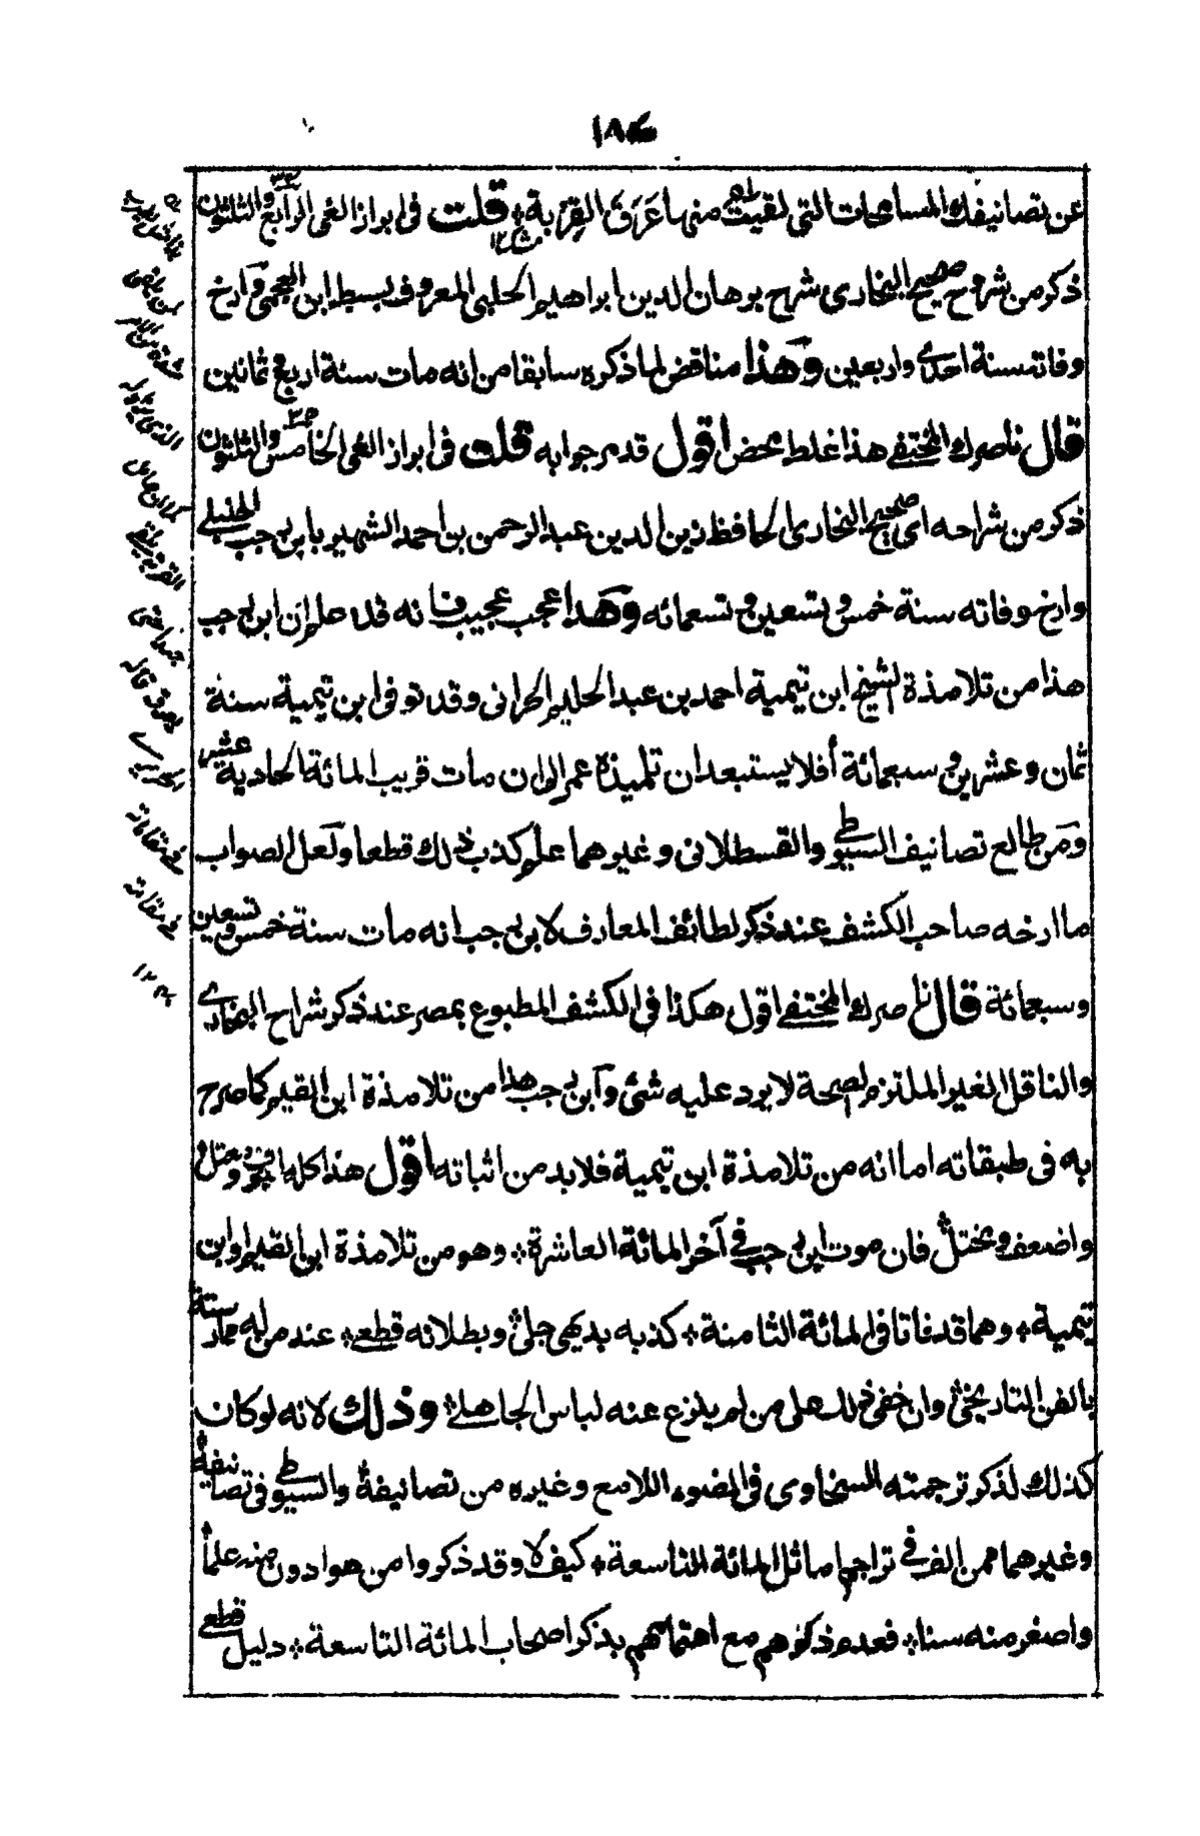 عن تصانيفك المسامحات التي لقيت منها عَرَقَ القِرْبة؞ قلت فى ابراز الغى الرابع والثلثون
ذكر من شروح صحيح البخارى شرح برهان الدين ابراهيم الحلبى المعروف بسبط ابن العجمى وآرخ
وفاته سنة احدى واربعين وهذا مناقض لما ذكره سابقا من انه مات سنة اربع ثمانين
قال ناصرك المختفى هذا غلط محض اقول قد مر جوابه قلت فى ابراز الغى الخامس والثلثون
ذكر من شراحه اى صحيح البخارى الحافظ زين الدين عبد الرحمن بن احمد الشهير بابن رجب الحنبلى
وارخ وفاته سنة خمس وتسعين وتسعمائه وهذا عجب عجيب فانه قد علم ان ابن رجب
هذا من تلامذة الشيخ ابن تيمية احمد بن عبد الحليم الحرانى وقد توفى ابن تيمية سنة
ثمان وعشرين وسبعمائة أفلا يستبعد ان تلميذه عمر الى ان مات قريب المائة الحادية عشر
ومن طالع تصانيف السيوطى والقسطلانى وغيرهما علم كذب ذلك قطعا ولعل الصواب
ما ارخه صاحب الكشف عند ذكر لطائف المعارف لابن رجب انه مات سنة خمس وتسعين
وسبعمائة قال ناصرك المختفى اقول هكذا فى الكشف المطبوع بمصر عند ذكر شراح البخارى
والناقل الغير الملتزم الصحة لا يرد عليه شئ وآبن رجب هذا من تلامذة ابن القيم كما صرح
به فى طبقاته اما انه من تلامذة ابن تيمية فلا بد من اثباته اقول هذا كله اجوف ومعتل
واضعف ومختل فان موت ابن رجب فى آخر المائة العاشرة؞ وهو من تلامذة ابن القيم او ابن
تيمية؞ وهما قد فاتا فى المائة الثامنة؞ كذبه بديهى جلى وبطلانه قطعى؞ عند من له ممارسة
بالفن التاريخى وان خفى ذلك على من لم ينزع عنه لباس الجاهلى وذلك لانه لو كان
كذلك لذكر ترجمته السخاوى فى الضوء اللامع وغيره من تصانيفه والسيوطى فى تصانيفه
وغيرهما ممن الف فى تراجم اماثل المائة التاسعة؞ كيف لا وقد ذكروا من هو ادون منه علما
واصغر منه سنا؞ فعدم ذكرهم مع اهتمامهم بذكر اصحاب المائة التاسعة؞ دليل قطعى